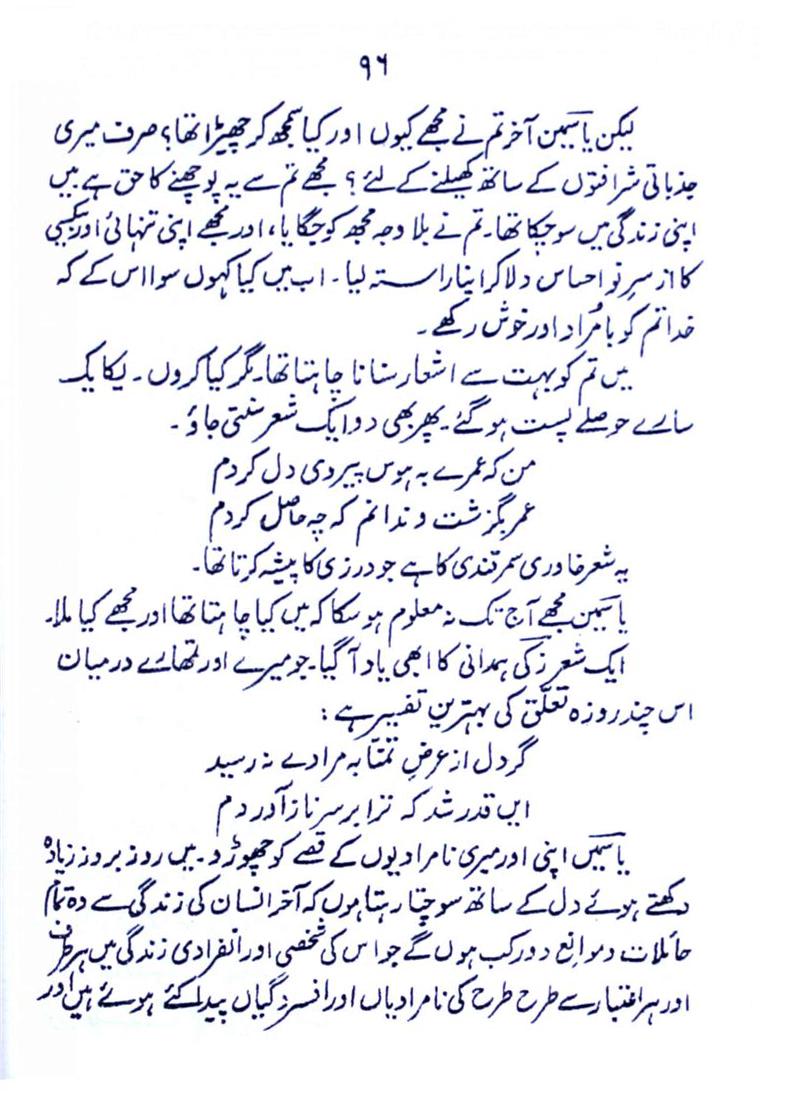 ۹۶
لیکن یاسمین آخر تم نے مجھے کیوں اور کیا سمجھ کر چھیڑا تھا؟ صرف میری
جذباتی شرافتوں کے ساتھ کھیلنے کے لئے؟ مجھے تم سے یہ پوچھنے کا حق ہے میں
اپنی زندگی میں سو چکا تھا۔ تم نے بلا وجہ مجھ کو جگایا، اور مجھے اپنی تنہائی اور بیکسی
کا از سرِ نو احساس دلا کر اپنا راستہ لیا۔ اب میں کیا کہوں سوا اس کے کہ
خدا تم کو بامُراد اور خوش رکھے۔
میں تم کو بہت سے اشعار سنانا چاہتا تھا۔ مگر کیا کروں۔ یکایک
سارے حوصلے پست ہو گئے۔ پھر بھی دو ایک شعر سنتی جاؤ۔
من کہ عمرے بہ ہوس پیروی دل کردم
عمر بگزشت و ندانم کہ چہ حاصل کردم
یہ شعر خاوری سمرقندی کا ہے جو درزی کا پیشہ کرتا تھا۔
یاسمین مجھے آج تک نہ معلوم ہو سکا کہ میں کیا چاہتا تھا اور مجھے کیا ملا۔
ایک شعر زکی ہمدانی کا ابھی یاد آ گیا۔ جو میرے اور تمھارے درمیان
اس چند روزہ تعلّق کی بہترین تفسیر ہے :
گر دل از عرضِ تمنّا بہ مرادے نہ رسید
ایں قدر شد کہ ترا بر سرِ ناز آوردم
یاسمیں اپنی اور میری نامرادیوں کے قصے کو چھوڑو۔ میں روز بروز زیادہ
دکھتے ہوئے دل کے ساتھ سوچتا رہتا ہوں کہ آخر انسان کی زندگی سے وہ تمام
حائلات و موانع دور کب ہوں گے جو اس کی شخصی اور انفرادی زندگی میں ہر طرف
اور ہر اعتبار سے طرح طرح کی نامرادیاں اور افسردگیاں پیدا کئے ہوئے ہیں اور